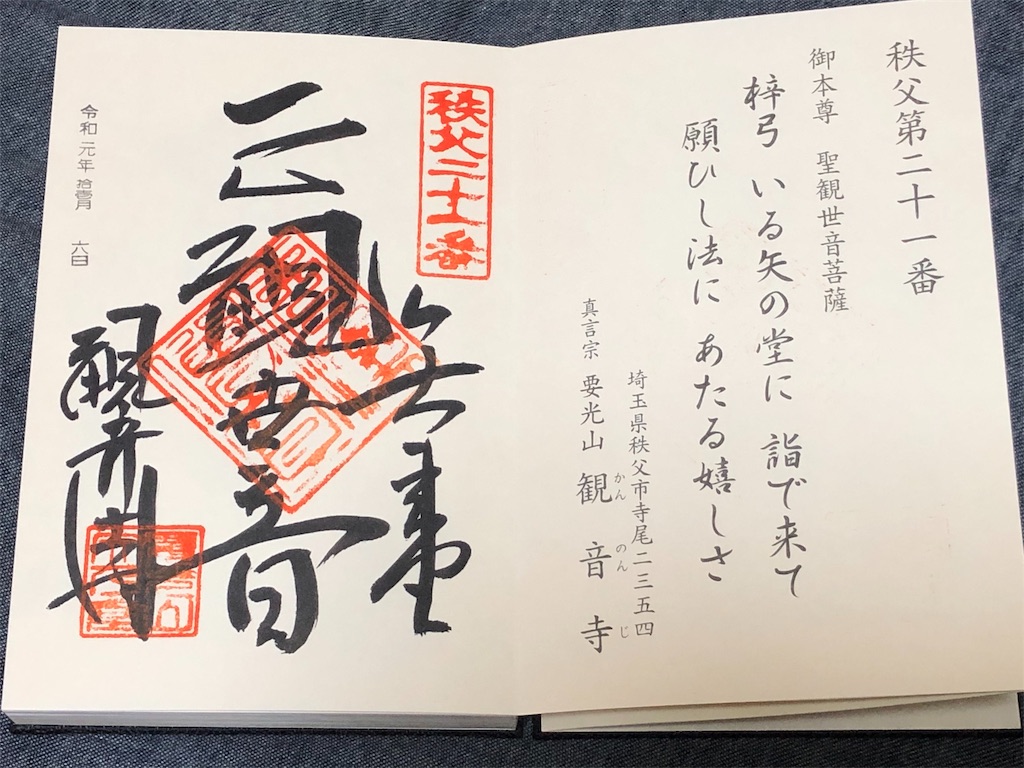 秩父第二十一番
御本尊 聖観世音菩薩
梓弓 いる矢の堂に 詣で来て
願ひし法に あたる嬉しさ
埼玉県秩父市寺尾二三五四
真言宗 要光山 観音寺
かんのんじ
秩父二十一番
奉拝
正観世音
令和元年 拾壱月 六日